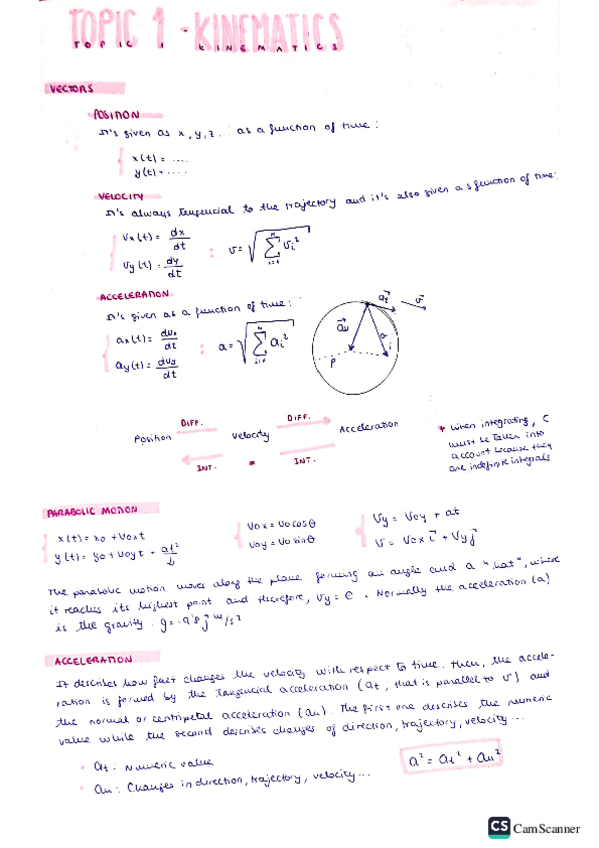 TOPIC 1 - KINEMATICS
TOPIC 1 KINEMATICS
VECTORS
POSITION
It's given as x, y, z... as a function of time:
x(t) = ....
y(t) = ....
VELOCITY
It's always tangencial to the trajectory and it's also given as function of time:
Vx(t) = dx/dt : v = √(Σ i=1 N Vi²)
Vy(t) = dy/dt
ACCELERATION
It's given as a function of time:
ax(t) = dvx/dt : a = √(Σ i=1 N ai²)
ay(t) = dvy/dt
at v
an a
ρ
DIFF. DIFF.
Position Velocity Acceleration
INT. INT.
* When integrating, C
must be taken into
account because they
are indefinite integrals
PARABOLIC MOTION
x(t) = x0 + V0xt
y(t) = y0 + V0yt + at²/2
V0x = V0 cosθ
V0y = V0 sinθ
Vy = V0y + at
V = V0x i + Vy j
The parabolic motion moves along the plane forming an angle and a "hat", where
it reaches its highest point and therefore, Vy = 0. Normally the acceleration (a)
is the gravity: g = -9'8 j m/s²
ACCELERATION
It describes how fast changes the velocity with respect to time. Then, the accele-
ration is formed by the tangencial acceleration (at, that is parallel to v) and
the normal or centripetal acceleration (an). The first one describes the numeric
value while the second describes changes of direction, trajectory, velocity ...
• at: Numeric value
• an: Changes in direction, trajectory, velocity ...
a² = at² + an²
CS CamScanner